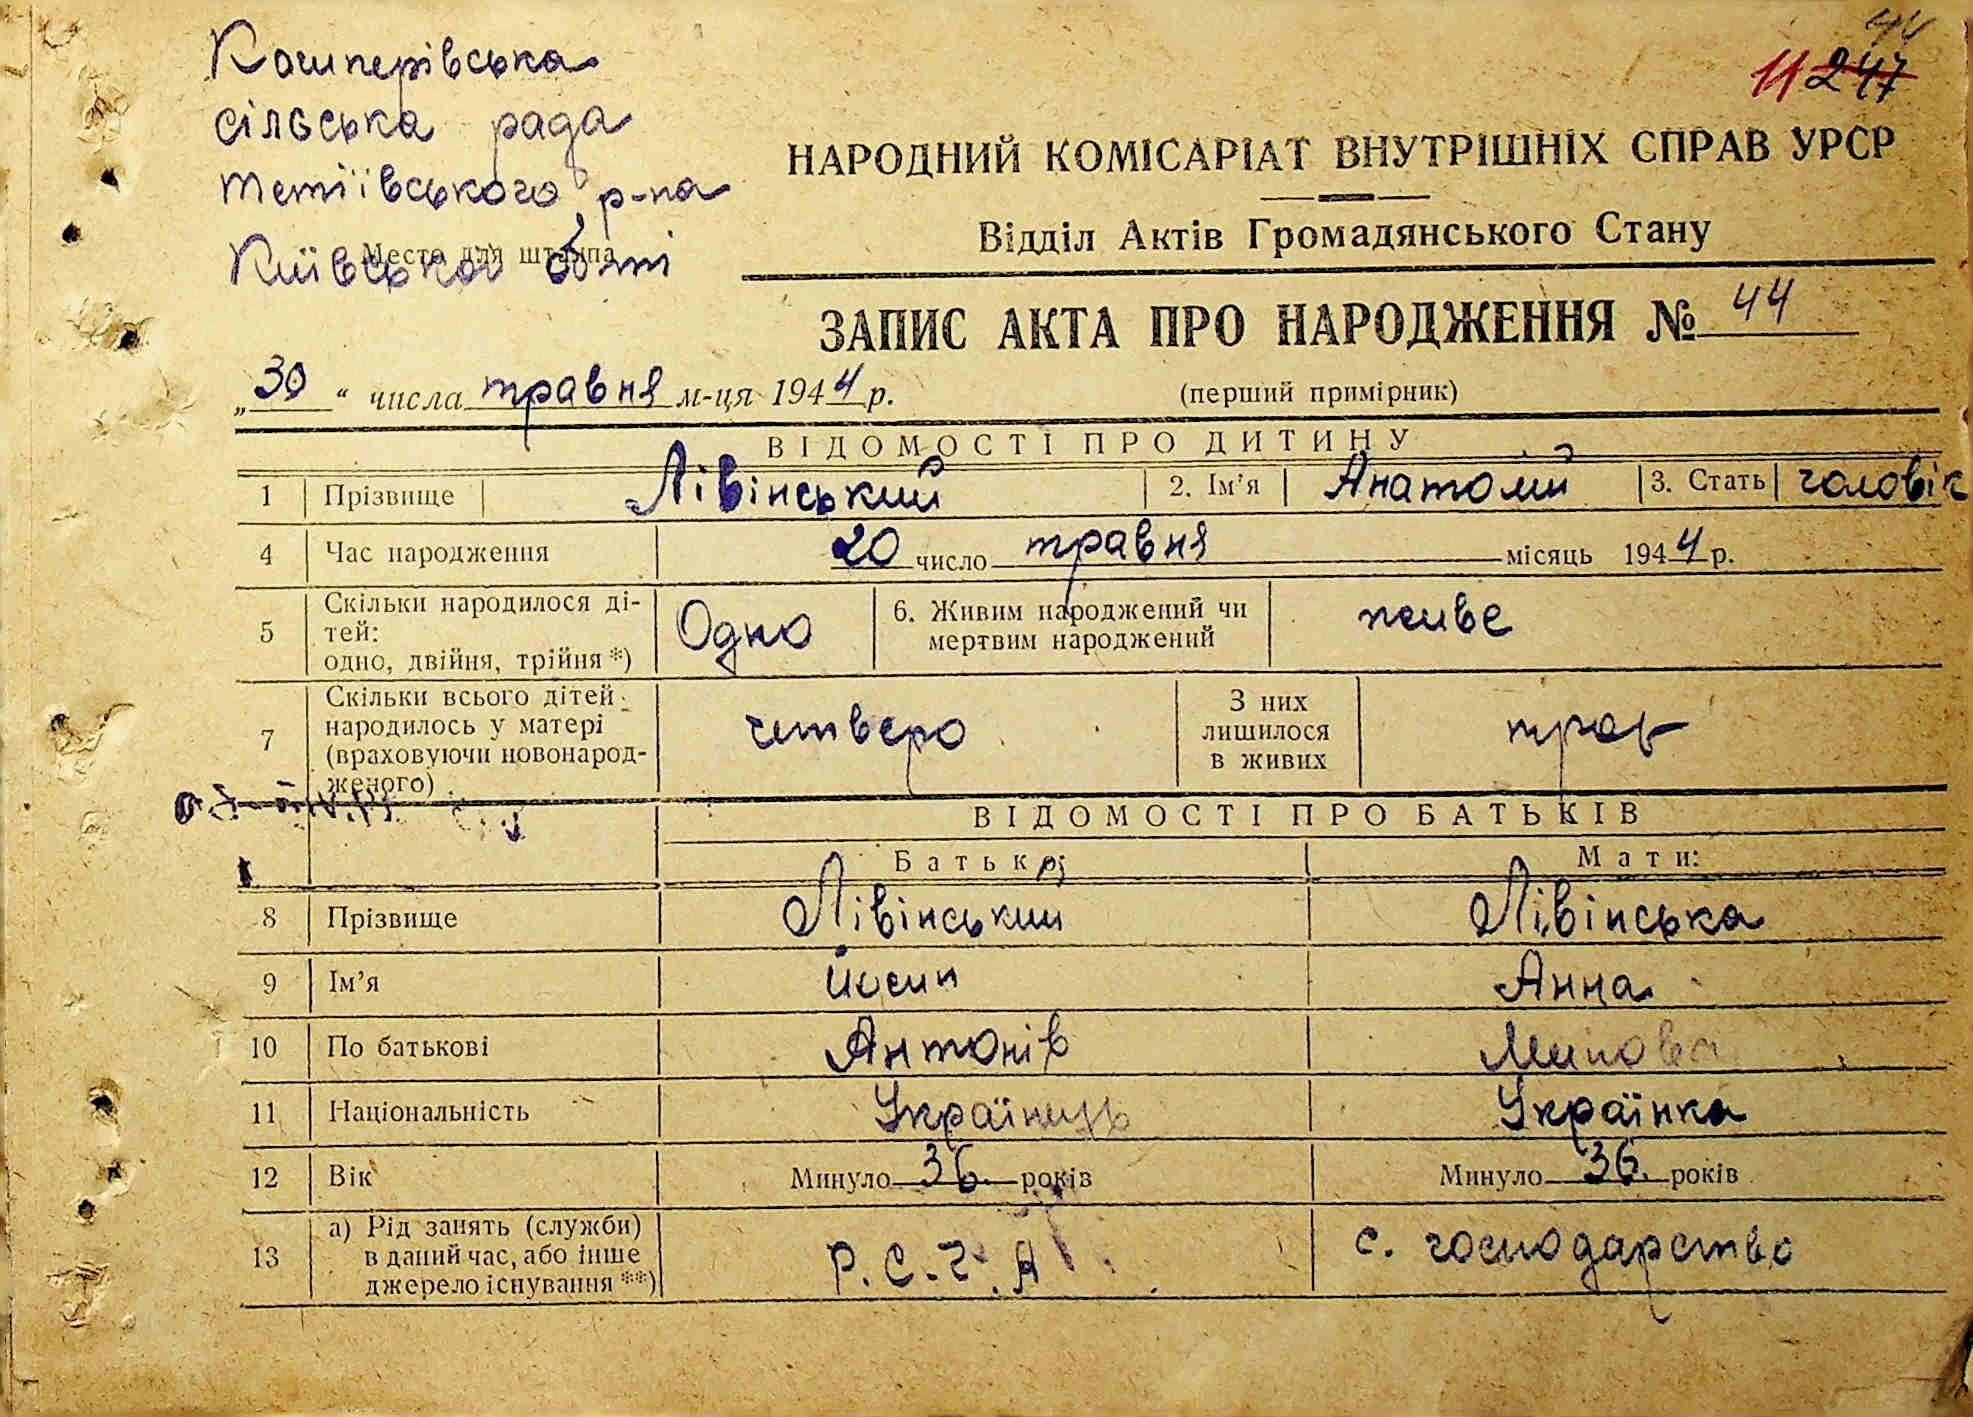 11 247
Кошперівська
сільська рада
Тетіївського р-на
Київської обл-ті
Место для штампа
НАРОДНИЙ КОМІСАРІАТ ВНУТРІШНІХ СПРАВ УРСР
Відділ Актів Громадянського Стану
ЗАПИС АКТА ПРО НАРОДЖЕННЯ № 44
„30“ числа травня м-ця 1944 р. (перший примірник)
ВІДОМОСТІ ПРО ДИТИНУ
1 Прізвище Лівінський 2. Ім’я Анатолій 3. Стать чоловік
4 Час народження 20 число травня місяць 1944 р.
5 Скільки народилося ді-
тей:
одно, двійня, трійня *) Одно 6. Живим народжений чи
мертвим народжений живе
7 Скільки всього дітей
народилось у матері
(враховуючи новонарод-
женого) четверо З них
лишилося
в живих троє
ВІДОМОСТІ ПРО БАТЬКІВ
Батько: Мати:
8 Прізвище Лівінський Лівінська
9 Ім’я Йосип Анна
10 По батькові Антонів
11 Національність Українець Українка
12 Вік Минуло 36. років Минуло 36. років
13 а) Рід занять (служби)
в даний час, або інше
джерело існування **) Р. С. Ч. А. с. господарство